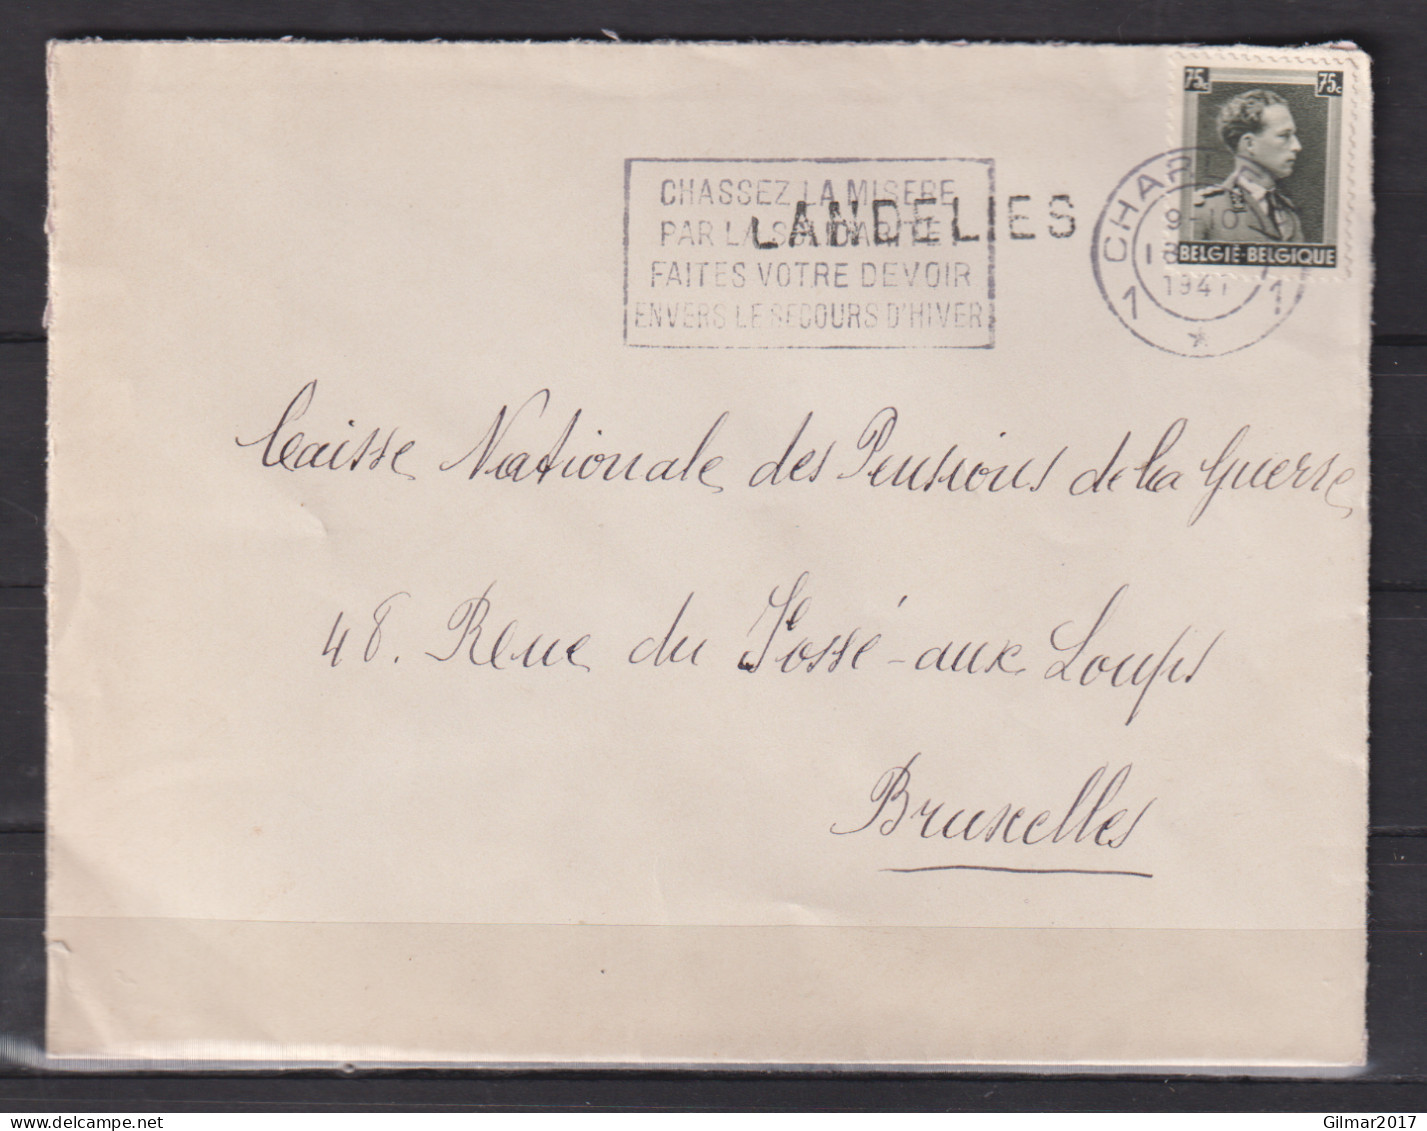 75c 75c
BELGIË-BELGIQUE
CHARLE
9-10
18
1941
1 1
CHASSEZ LA MISERE
PAR LA SOLIDARITE!
FAITES VOTRE DEVOIR
ENVERS LE SECOURS D'HIVER
LANDELIES
Caisse Nationale des Pensions de la Guerre
48. Reue du Fossé-aux Loups
Bruxelles
Gilmar2017